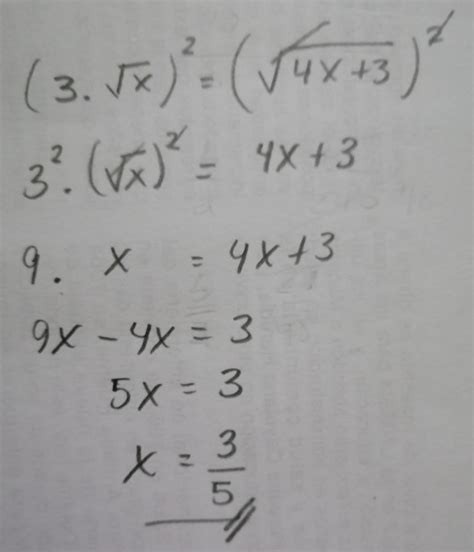 (3. √x)² = (√4x+3)²
3². (√x)² = 4x+3
9. x = 4x+3
9x - 4x = 3
5x = 3
x = 3/5